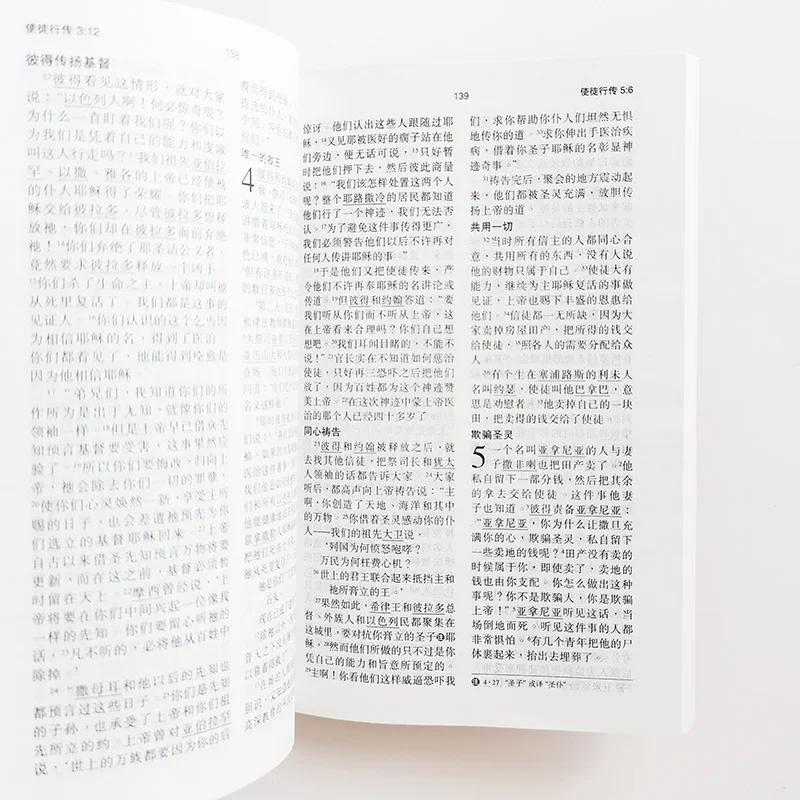 使徒行传 3:12
138
彼得传扬基督
12彼得看见这情形，就对大家
说：“以色列人啊！何必惊奇呢？
为什么一直盯着我们呢？你们以
为我们是凭着自己的能力和虔诚
叫这人行走吗？13我们祖先亚伯拉
罕、以撒、雅各的上帝已经使祂
的仆人耶稣得了荣耀。你们把耶
稣交给彼拉多，尽管彼拉多想释
放祂，你们却在彼拉多面前弃绝
祂！14你们弃绝了那圣洁公义者，
竟然要求彼拉多释放一个凶手。
15你们杀了生命之主，上帝却叫祂
从死里复活了。我们都是这事的
见证人。16你们认识的这个乞丐因
为相信耶稣的名，得到了医治。
你们都看见了，他能得到痊愈是
因为他相信耶稣。
17“弟兄们，我知道你们的所
作所为是出于无知，就像你们的
领袖一样。18但是上帝早已借众先
知预言基督要受害，这事果然应
验了。19所以你们要悔改，归向上
帝，祂会除去你们一切的罪恶，
20使你们心灵焕然一新，享受主所
赐的日子，也会差遣被预先为你
们选立的基督耶稣回来。21上帝
自古以来借圣先知预言万物将要
更新，而在这之前，基督必须暂
时留在天上。22摩西曾经说，‘上
帝将要在你们中间兴起一位像我
一样的先知，你们要留心听祂的
话，23凡不听的，必将他从百姓中
除掉。’
24“撒母耳和他以后的先知也
都预言过这些日子。25你们是先知
的子孙，也承受了上帝和你们祖
先所立的约。上帝曾对亚伯拉罕
说，‘世上的万族都要因为你的后
唯一的救主
4
139
使徒行传 5:6
惊讶。他们认出这些人跟随过耶
稣，14又见那被医好的瘸子站在他
们旁边，便无话可说，15只好暂时
把他们押下去，然后彼此商量
说：16“我们该怎样处置这两个人
呢？整个耶路撒冷的居民都知道
他们行了一个神迹，我们无法否
认。17为了避免这件事传得更广，
我们必须警告他们以后不许再对
任何人传讲耶稣的事。”
18于是他们又把使徒传来，严
令他们不许再奉耶稣的名讲论或
传道。19但彼得和约翰答道：“要我
们听从你们而不听从上帝，这
在上帝看来合理吗？你们自己想
想吧。20我们耳闻目睹的，不能不
说！”21官长实在不知道如何惩治
使徒，只好再三恐吓之后把他们
放了，因为百姓都为这个神迹赞
美上帝。22在这次神迹中蒙上帝医
治的那个人已经四十多岁了。
同心祷告
23彼得和约翰被释放之后，就
去找其他信徒，把祭司长和犹太
人领袖的话都告诉大家。24大家
听后，都高声向上帝祷告说：“主
啊，你创造了天地、海洋和其中
的万物。25你借着圣灵感动你的仆
人——我们的祖先大卫说，
‘列国为何愤怒咆哮？
万民为何枉费心机？
26世上的君王联合起来抵挡主和
祂所膏立的王。’
27果然如此，希律王和彼拉多总
督、外族人和以色列民都聚集在
这城里，要对抗你膏立的圣子注耶
稣，28然而他们所做的只不过是你
凭自己的能力和旨意所预定的。
29主啊！你看他们这样威逼恐吓我
们，求你帮助你仆人们坦然无惧
地传你的道。30求你伸出手医治疾
病，借着你圣子耶稣的名彰显神
迹奇事。”
31祷告完后，聚会的地方震动起
来，他们都被圣灵充满，放胆传
扬上帝的道。
共用一切
32当时所有信主的人都同心合
意，共用所有的东西，没有人说
他的财物只属于自己。33使徒大有
能力，继续为主耶稣复活的事做
见证，上帝也赐下丰盛的恩惠给
他们。34信徒都一无所缺，因为大
家卖掉房屋田产，把所得的钱交
给使徒，35照各人的需要分配给众
人。
36有个生在塞浦路斯的利未人
名叫约瑟，使徒叫他巴拿巴，意
思是劝慰者。37他卖掉自己的一块
田，把卖得的钱交给了使徒。
欺骗圣灵
5 一个名叫亚拿尼亚的人与妻
子撒非喇也把田产卖了。2他
私自留下一部分钱，然后把其余
的拿去交给使徒。这件事他妻
子也知道。3彼得责备亚拿尼亚：
“亚拿尼亚，你为什么让撒旦充
满你的心，欺骗圣灵，私自留下
一些卖地的钱呢？4田产没有卖的
时候属于你，即使卖了，卖地的
钱也由你支配。你怎么做出这种
事呢？你不是欺骗人，你是欺骗
上帝！”5亚拿尼亚听见这话，当
场倒地而死。听见这件事的人都
非常惧怕。6有几个青年把他的尸
体裹起来，抬出去埋葬了。
注 4·27 “圣子”或译“圣仆”